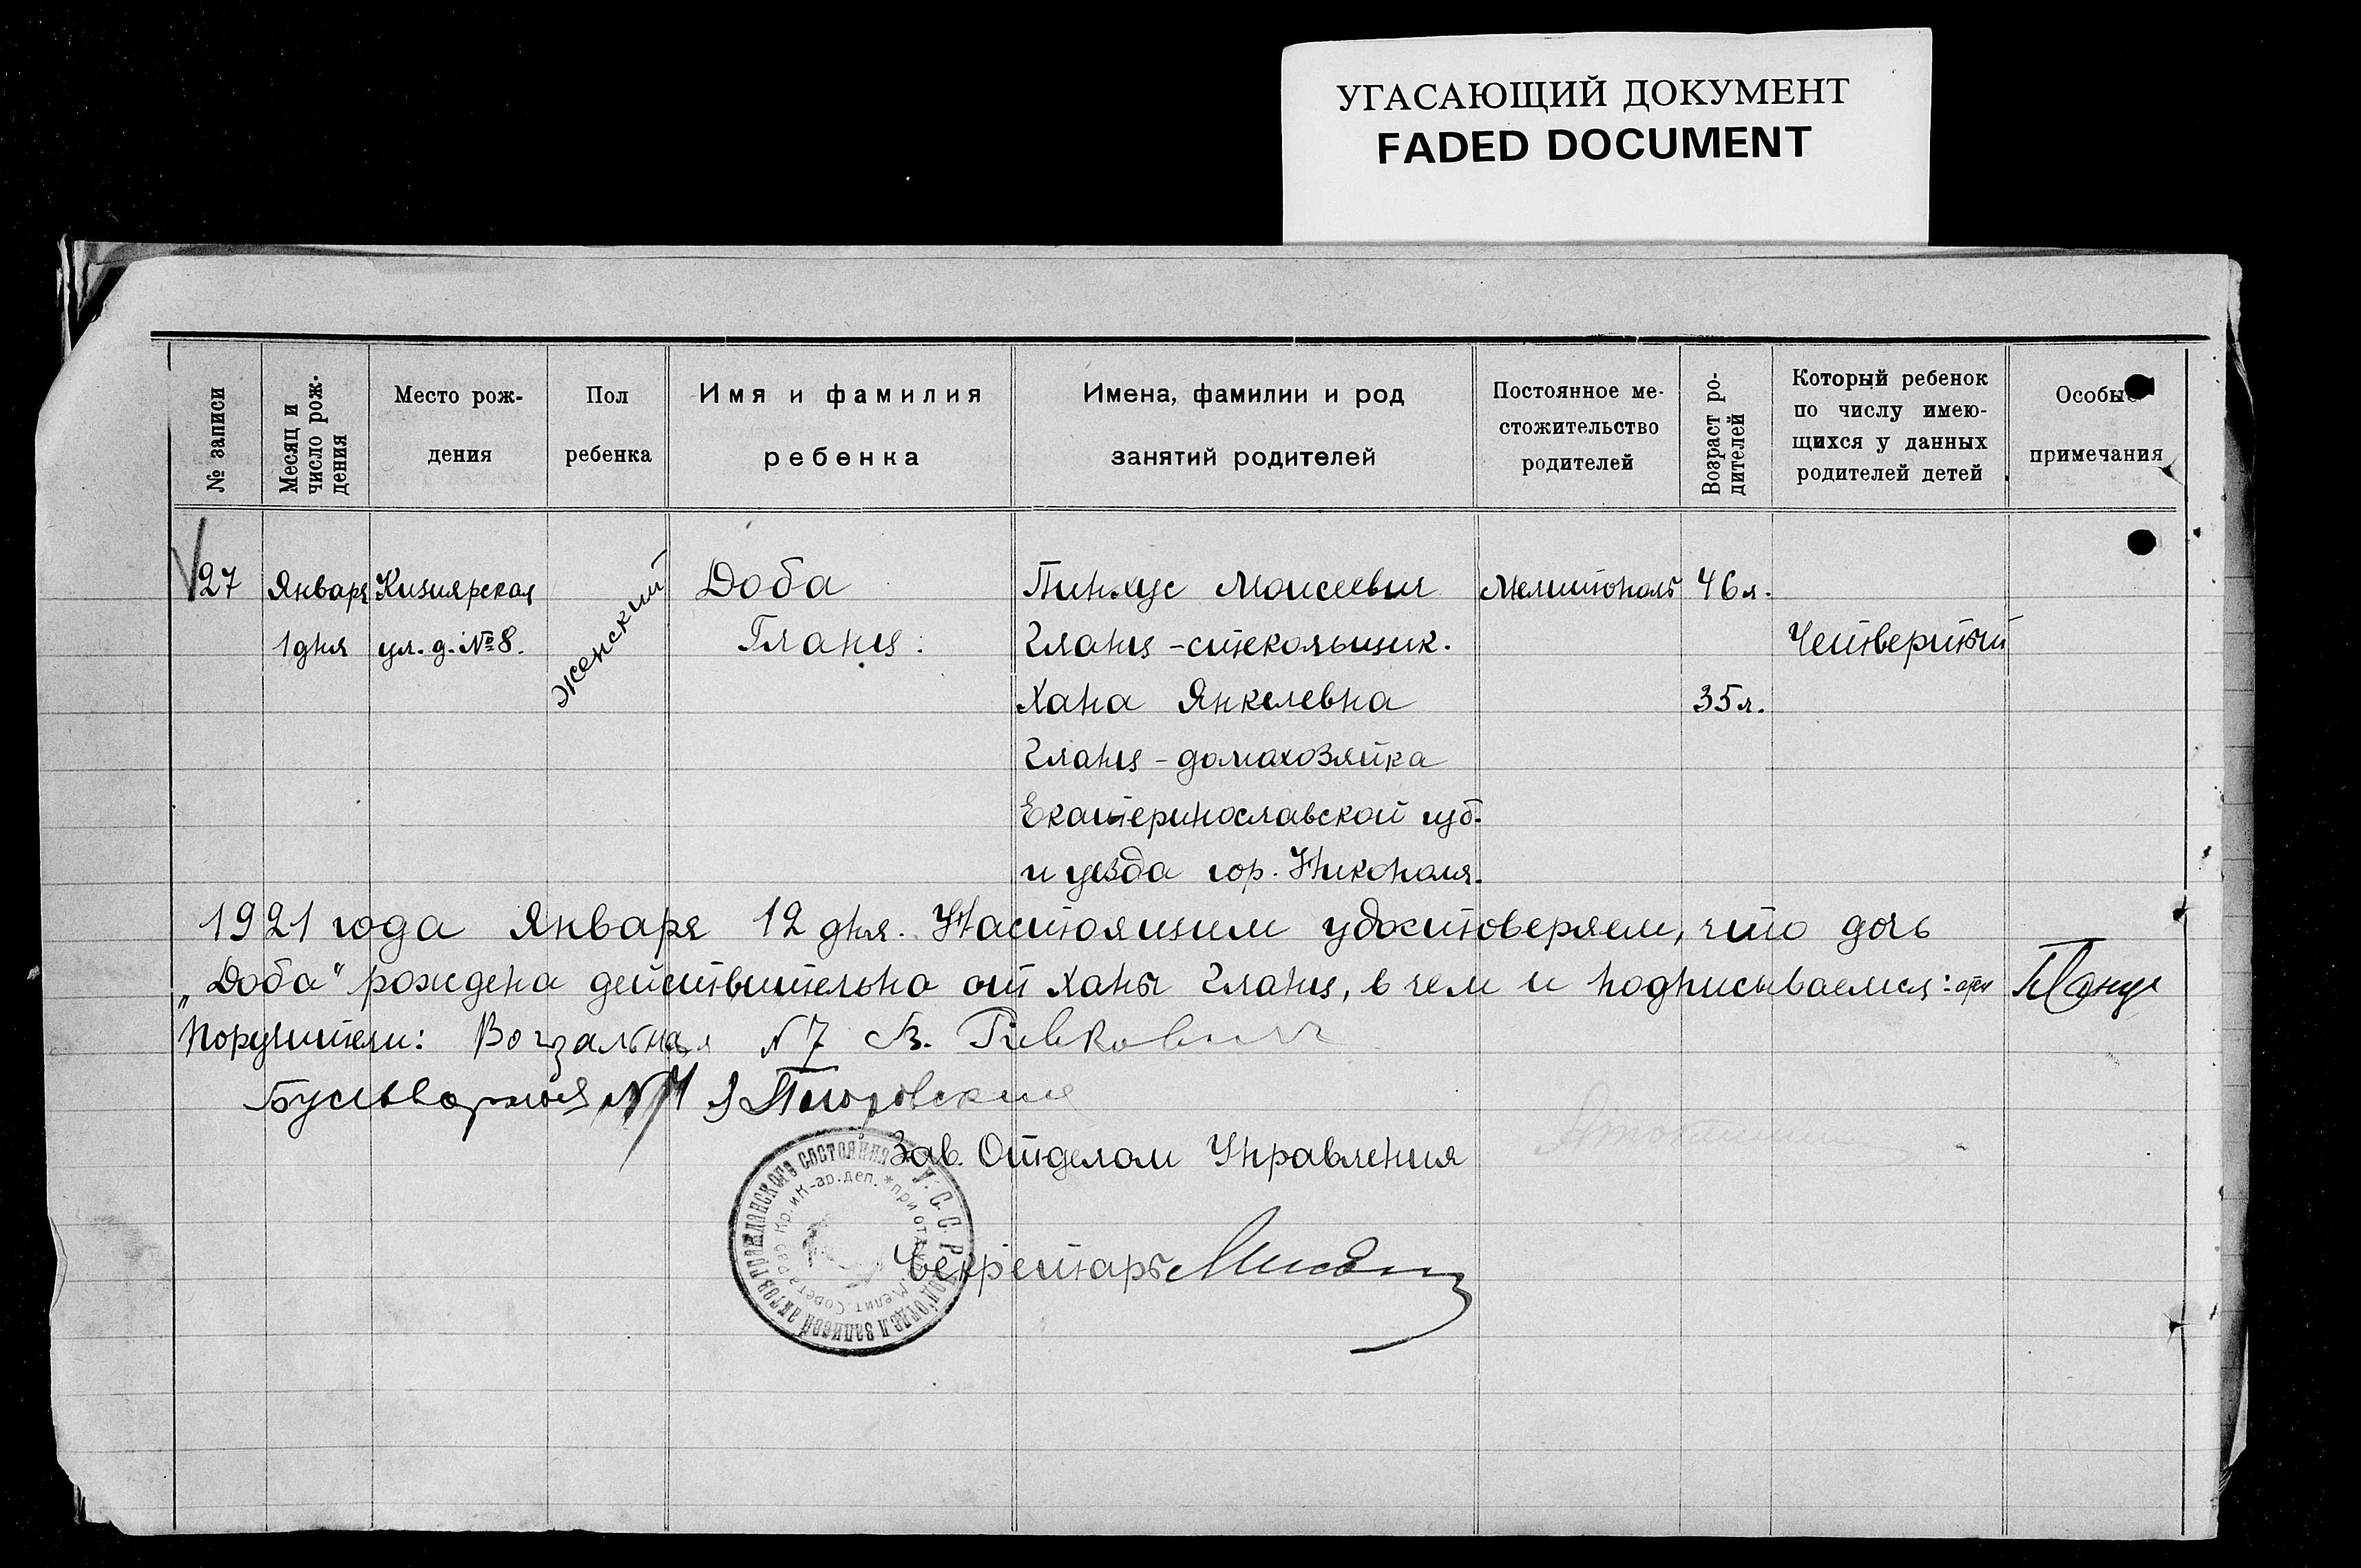 УГАСАЮЩИЙ ДОКУМЕНТ
FADED DOCUMENT
№ записи
Месяц и
число рож-
дения
Место рож-
дения
Пол
ребенка
Имя и фамилия
ребенка
Имена, фамилии и род
занятий родителей
Постоянное ме-
стожительство
родителей
Возраст ро-
дителей
Который ребенок
по числу имею-
щихся у данных
родителей детей
Особые
примечания
27
Января
1 дня
Кизиярская
ул. д. № 8.
женский
Доба
Гланц.
Пинхус Моисеевич
Гланц - стекольщик.
Хана Янкелевна
Гланц - домахозяйка
Екатеринославской губ.
и уезда гор. Никополя.
Мелитополь
46 л.
35 л.
Четвертый
1921 года Января 12 дня. Настоящим удостоверяем, что дочь
„Доба“ рождена действительно от Ханы Гланц, в чем и подписываемся:
Поручители: Вогзальная № 7 Ривкович
Зав. Отделом Управления
Секретарь
У. С. С. Р. Подотдел записей актов гражданского состояния